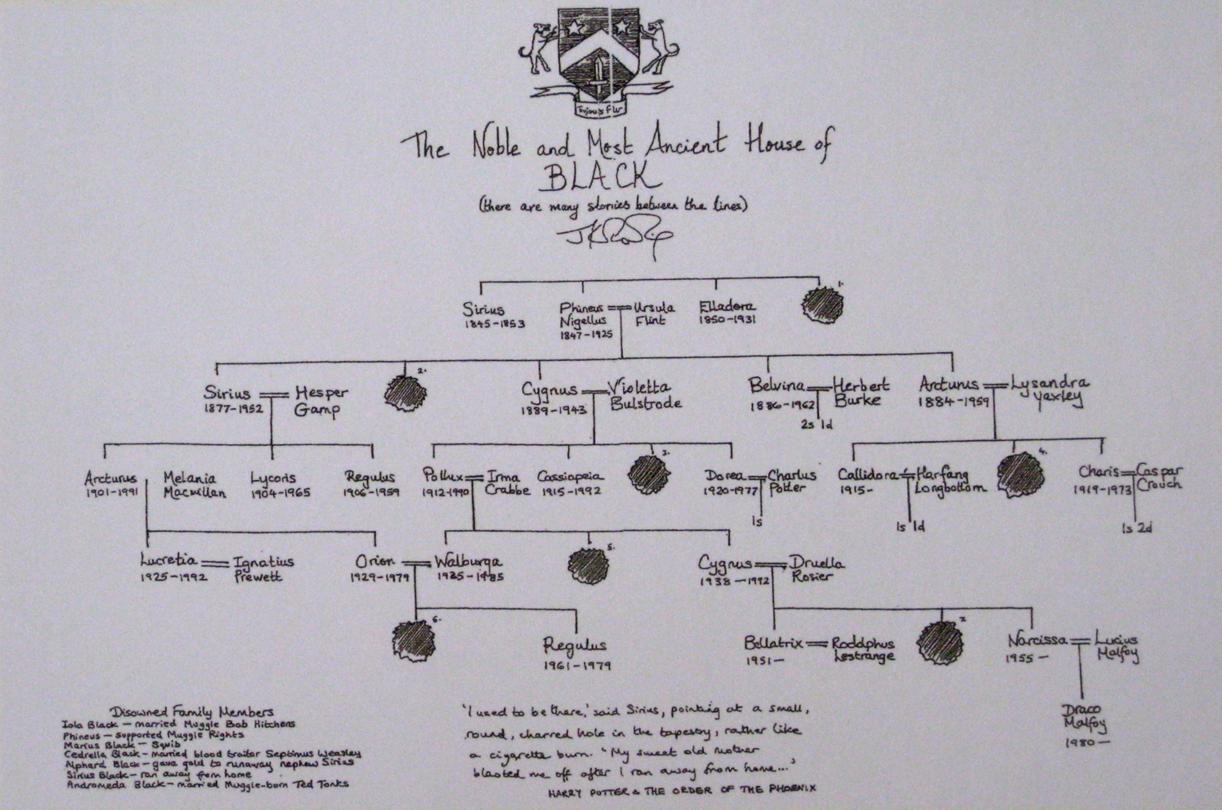 Toujours Pur
The Noble and Most Ancient House of
BLACK
(there are many stories between the lines)
1.
Sirius
1845-1853
Phineas
Nigellus
1847-1925
Ursula
Flint
Elladora
1850-1931
2.
Sirius
1877-1952
Hesper
Gamp
Cygnus
1889-1943
Violetta
Bulstrode
Belvina
1886-1962
Herbert
Burke
2s 1d
Arcturus
1884-1959
Lysandra
Yaxley
3.
4.
Arcturus
1901-1991
Melania
Macmillan
Lycoris
1904-1965
Regulus
1906-1959
Pollux
1912-1990
Irma
Crabbe
Cassiopeia
1915-1992
Dorea
1920-1977
Charlus
Potter
1s
Callidora
1915-
Harfang
Longbottom
1s 1d
Charis
1919-1973
Caspar
Crouch
1s 2d
5.
Lucretia
1925-1992
Ignatius
Prewett
Orion
1929-1979
Walburga
1925-1985
Cygnus
1938-1992
Druella
Rosier
6.
7.
Regulus
1961-1979
Bellatrix
1951-
Rodolphus
Lestrange
Narcissa
1955-
Lucius
Malfoy
Draco
Malfoy
1980-
Disowned Family Members
Iola Black - married Muggle Bob Hitchens
Phineas - supported Muggle Rights
Marius Black - Squib
Cedrella Black - married blood traitor Septimus Weasley
Alphard Black - gave gold to runaway nephew Sirius
Sirius Black - ran away from home
Andromeda Black - married Muggle-born Ted Tonks
'I used to be there,' said Sirius, pointing at a small,
round, charred hole in the tapestry, rather like
a cigarette burn. 'My sweet old mother
blasted me off after I ran away from home...'
HARRY POTTER & THE ORDER OF THE PHOENIX